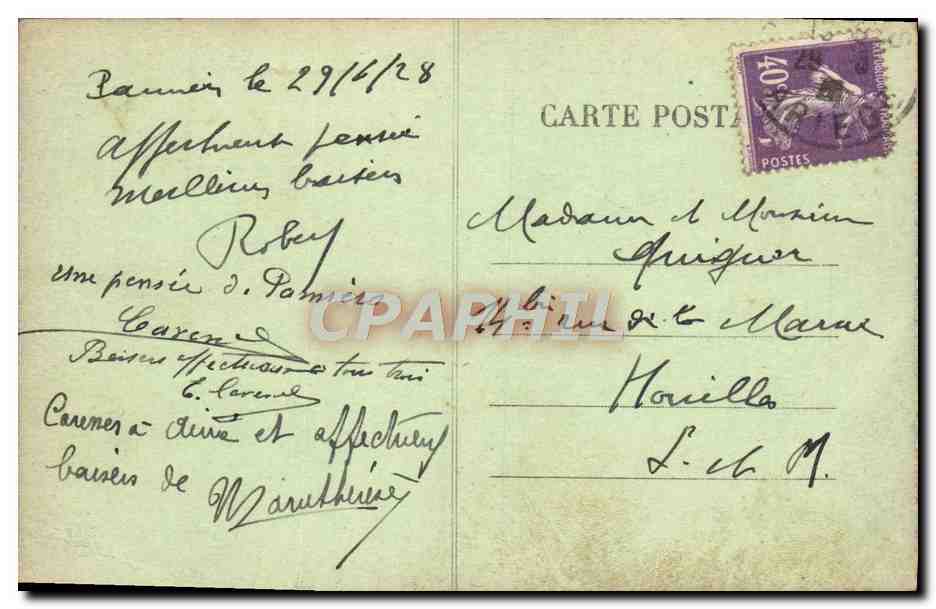 Pamiers le 29/6/28
affectueuse pensée
meilleurs baisers
Robert
une pensée de Pamiers
Baisers affectueux à tous trois
E.
Caresses à et affectueux
baisers de
Mariethérèse
CARTE POSTA
40c
POSTES
ARIEG
Madame et Monsieur
4 bis rue de la Marne
Houilles
S. et M.
CPAPHIL